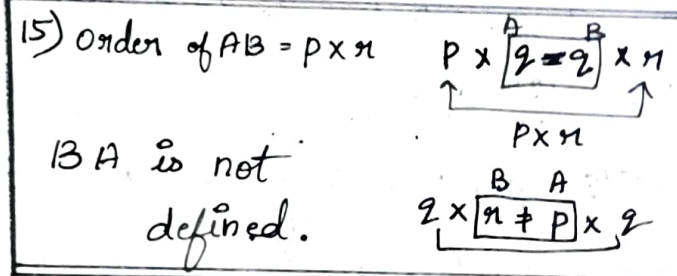 15) Order of AB = p x r
A B
p x q = q x r
p x r
BA is not
defined.
B A
q x r ≠ p x q